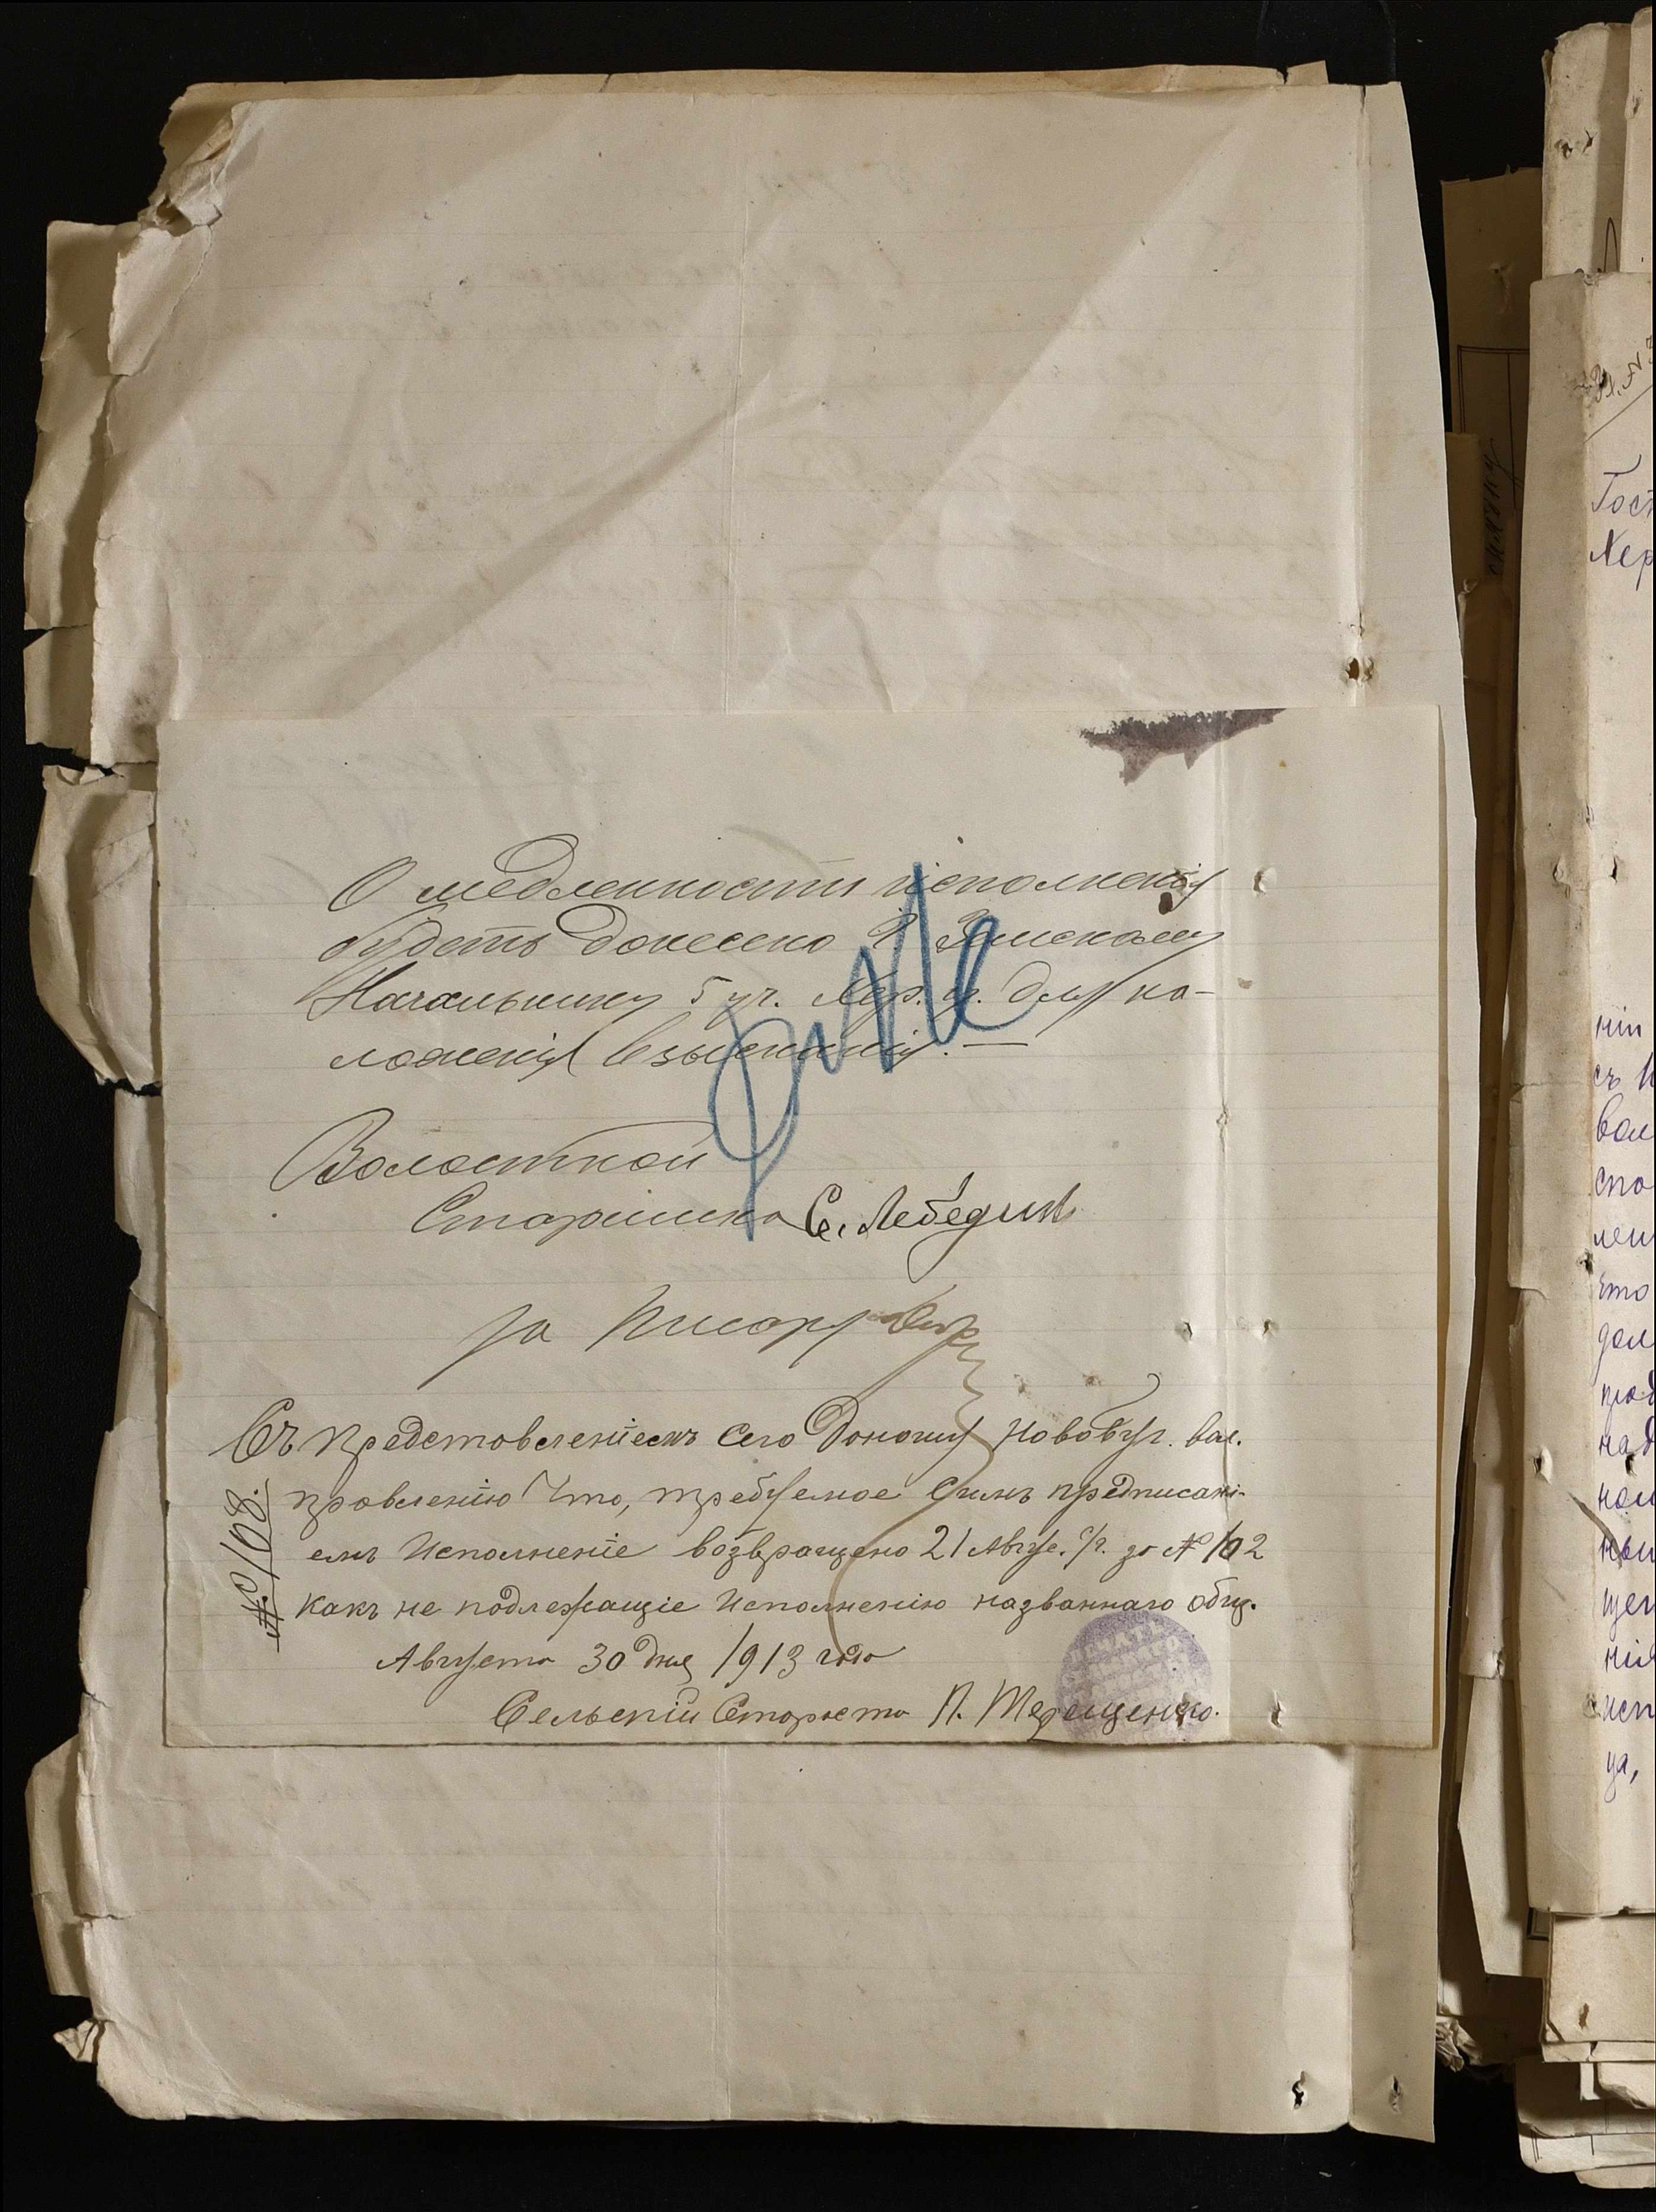 О медленности исполненія
будетъ донесено Г. Земскому
Начальнику 5 уч. Хер. у. для на-
ложенія взысканія. —
Волостной
Старшина С. Лебедин
За Писаря
Съ представленіемъ сего доношу Новобуг. вол.
правленію что, требуемое симъ предписані-
емъ исполненіе возвращено 21 Авгус. с/г. за № 102
какъ не подлежащіе исполненію названнаго общ.
Августа 30 дня 1913 года
Сельскій Староста П. Терещенко.
№ 108.
Гос
Хер
ніи
съ
вол
спо
лен
что
дол
над
щен
нія
исп
ца,